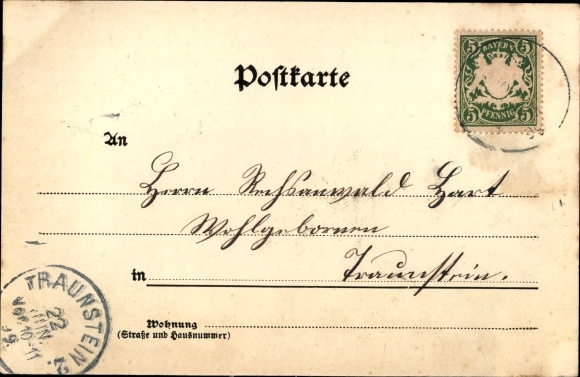 Postkarte
5 BAYERN 5
5 PFENNIG 5
An
Herrn Rechsanwald Hart
Wohlgebornen
in Traunstein.
Wohnung
(Straße und Hausnummer)
TRAUNSTEIN 2.
22
JUN
VOR 10-11